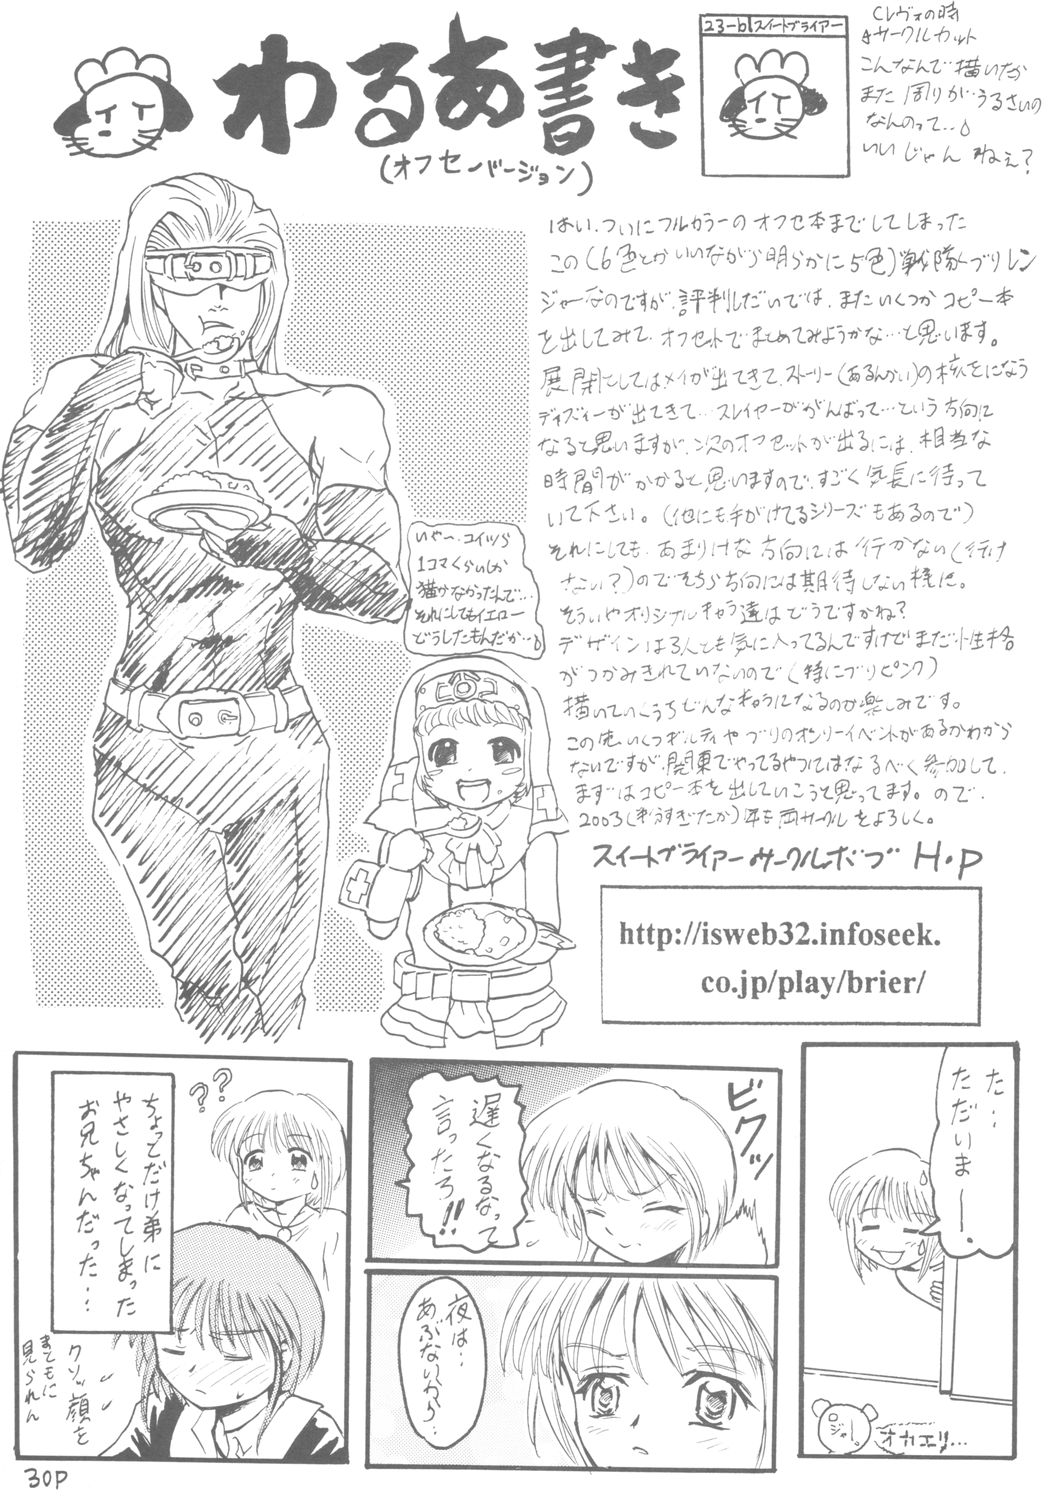 わるあ書き
(オフセーバージョン)
23-b スイートブライアー
Cレヴォの時
サークルカット
こんなんで描いたが
また周りが…うるさいの
なんのって…
いいじゃんねぇ?
はい、ついにフルカラーのオフセ本までしてしまった
この(6色とかいいながら明らかに5色)戦隊ブリレン
ジャーなのですが、評判しだいでは、またいくつかコピー本
を出してみて、オフセットでまとめてみようかな…と思います。
展開としてはメイが出てきて、ストーリー(あるんかい)の核をになう
ディズィーが出てきて…スレイヤーががんばって…という方向に
なると思いますが、次のオフセットが出るには、相当な
時間がかかると思いますので、すごく気長に待って
いて下さい。(他にも手がけてるシリーズもあるので)
それにしても、あまりHな方向には行かない(行け
ない?)のでそちら方向には期待しない様に。
そういやオリジナルキャラ達はどうですかね?
デザインは3人とも気に入ってるんですけどまだ性格
がつかみきれていないので(特にブリピンク)
描いていくうちどんなふうになるのか楽しみです。
この先いくつギルティやブリのオンリーイベントがあるかわから
ないですが、関東でやってるやつにはなるべく参加して、
まずはコピー本を出していこうと思ってます。ので、
2003(気がすぎたか)年も両サークルをよろしく。
スイートブライアー サークルボブ H.P
http://isweb32.infoseek.
co.jp/play/brier/
いやー、コイツら
1コマくらいしか
描かなかったんで…
それにしてもイエロー
どうしたもんだか…
た…
ただいまー…
オカエリ…
ビクッ
遅くなるなって
言ったろ!!
夜は…
あぶないから…
??
ちょってだけ弟に
やさしくなってしまった
お兄ちゃんだった…
クソッ顔を
まともに
見られん
30P